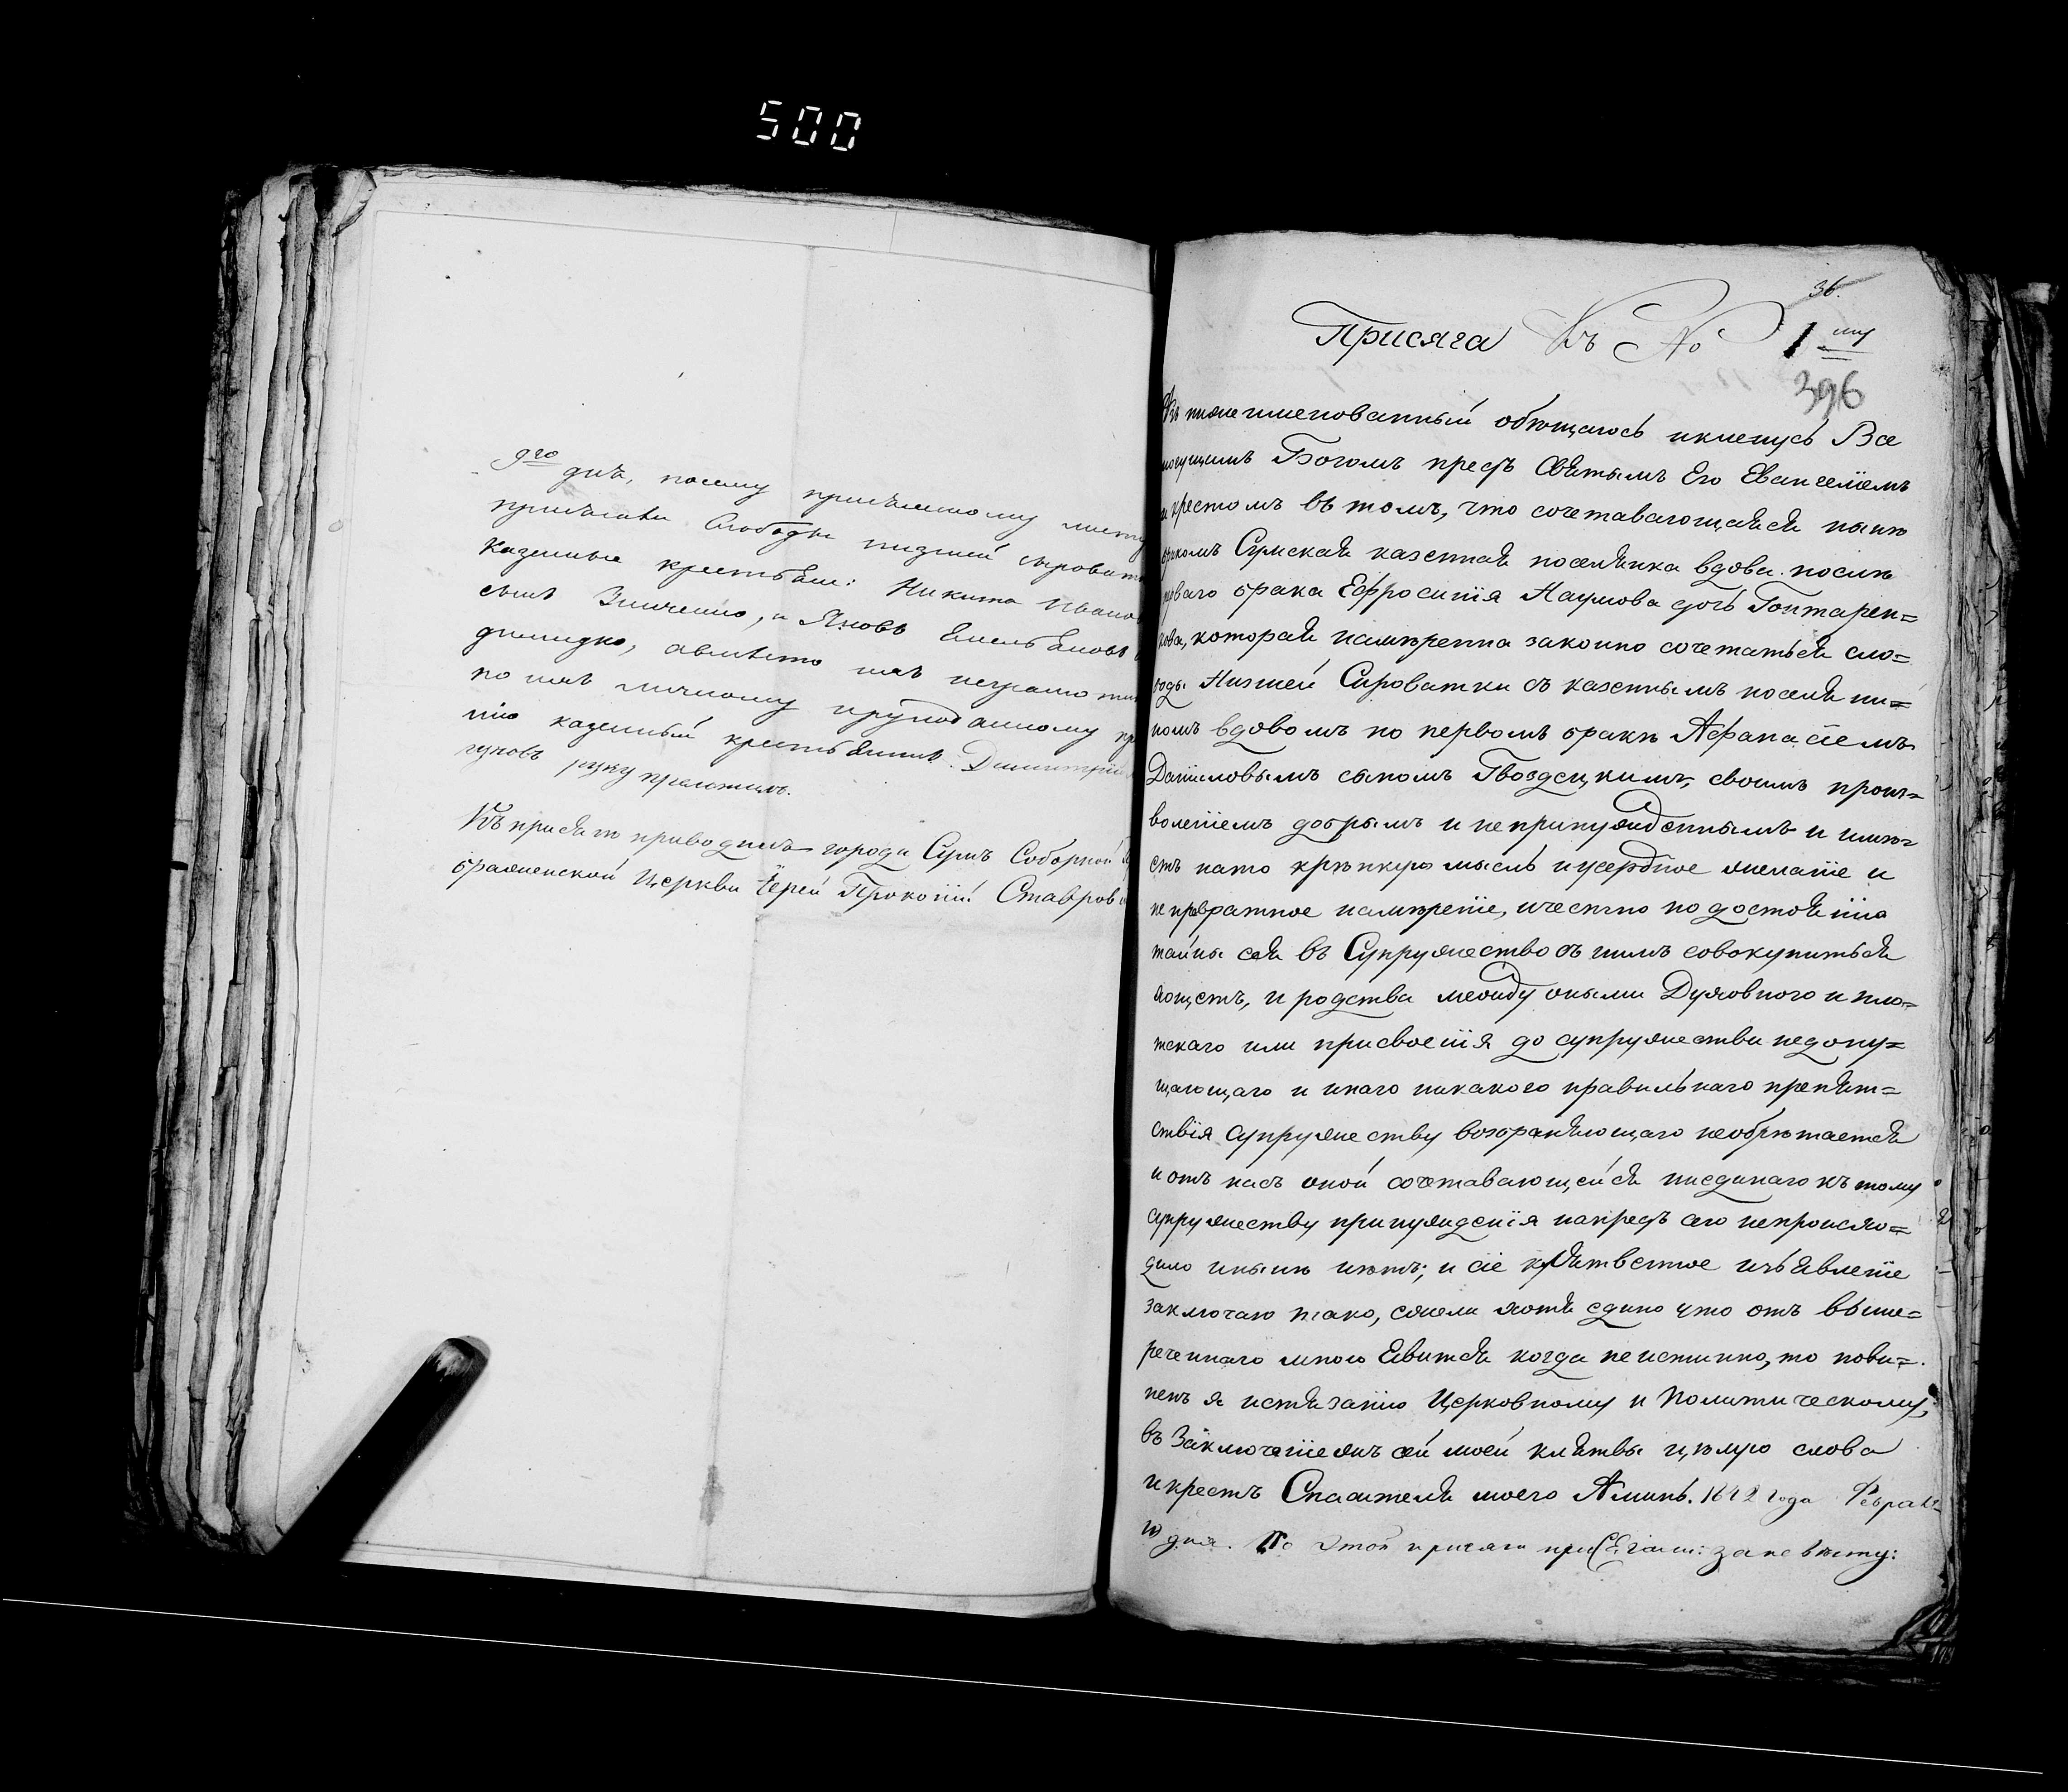 500
9го дня, посему присяжному листу
присягали Слободы низшей сыроват
казенные крестьяне: Никита Иванов
сынъ Зинченко, и Яковъ Емельяновъ
, авместо ихъ неграмотн
по ихъ личному рукоданному пр
нію казенный крестьянинъ Димитрій
руку приложилъ.
Къ присягѣ приводилъ города Сумъ Соборной
ображенской Церкви Іерей Прокопій Ставров
36.
Присяга Къ № 1му
396
Азъ нижеименованный обѣщаюсь иклянусь Все
могущимъ Богомъ предъ Святымъ Его Евангеліемъ
и крестомъ въ томъ, что сочетавающаяся нынѣ
бракомъ Сумская казенная поселянка вдова послѣ
перваго брака Ефросинія Наумова дочь Гонтарен=
кова, которая намѣренна законно сочетаться сло=
боды Низшей Сыроватки съ казеннымъ поселяни=
номъ вдовомъ по первомъ бракѣ Афанасіемъ
Даніиловымъ сыномъ Гвоздецкимъ, своимъ произ=
воленіемъ добрымъ и непринужденнымъ и имѣ=
етъ нато крѣпкую мысль иусердное желаніе и
не превратное намѣреніе, ичестно подостоянію
тайны сея въ Супружество съ нимъ совокупиться
хощетъ, и родства между оными Духовного и пло=
тскаго или присвоенія до супружества недопу=
щающаго и инаго никакого правильнаго препят=
ствія супружеству возграняющаго необрѣтается
и отъ насъ оной сочетавающейся ниединаго къ тому
супружеству принужденія напредъ сего непроисхо=
дило инынѣ нѣтъ; и сіе клятвенное изъявленіе
заключаю тако, ежели хотя едино что отъ выше=
реченнаго мною явится когда неистинно, то пови=
ненъ я истязанію Церковному и Политическому,
въ Заключеніежъ сей моей клятвы цѣлую слова
икрестъ Спасителя моего Аминь. 1842 года Февраля
дня. По этой присяги присягали: за невѣсту: